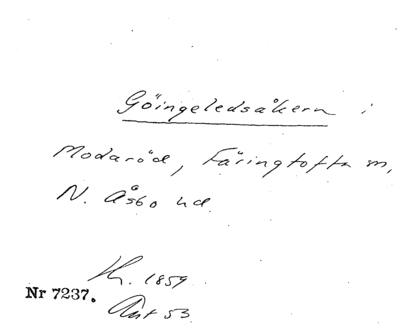 Göingeledsåkern i
Modaröd, Färingtofta sn,
N. Åsbo hd
Nr 7237.
1859
53